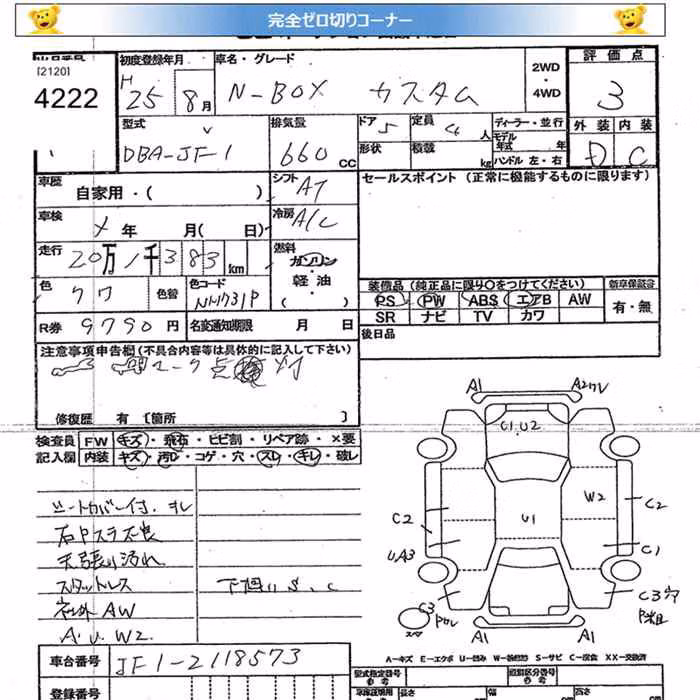 完全ゼロ切りコーナー
[2120]
4222
初度登録年月
H 25 年 8 月
車名・グレード
N-BOX カスタム
2WD
・
4WD
評価点
3
型式
DBA-JF1
排気量
660 CC
ドア 5
定員 4 人
形状
積載 kg
ディーラー・並行
モデル年式 年
ハンドル 左・右
外装 内装
D C
車歴
自家用・( )
シフト AT
セールスポイント (正常に機能するものに限ります)
車検
年 月( 日)
冷房 A/C
走行
20万1千383 km
燃料
ガソリン
・
軽油
( )
色
クロ
色替
色コード
NH731P
装備品 (純正品に限り〇をつけてください)
新車保証書
PS PW ABS エアB AW
有・無
SR ナビ TV カワ
R券 9790 円
名変通知期限 月 日
後日品
注意事項申告欄 (不具合内容等は具体的に記入して下さい)
マーク点 灯
修復歴 有 [箇所 ]
検査員
記入欄
FW キズ・飛石・ヒビ割・リペア跡・×要
内装 キズ・汚レ・コゲ・穴・スレ・キレ・破レ
シートカバー付、キレ
右Pスラ不良
天張り汚れ
スタットレス
下廻りS、C
社外AW
A、U、W2
A1 A2ワレ
C1、U2
W2
C2
C2
U1
U、A3
C1
C3
C3穴
スペア
A1 A1
A-キズ E-エクボ U-凹み S-サビ C-腐食 XX-交換済
車台番号
JF1-2118573
登録番号
型式指定番号
参考
類別区分番号
参考
長さ